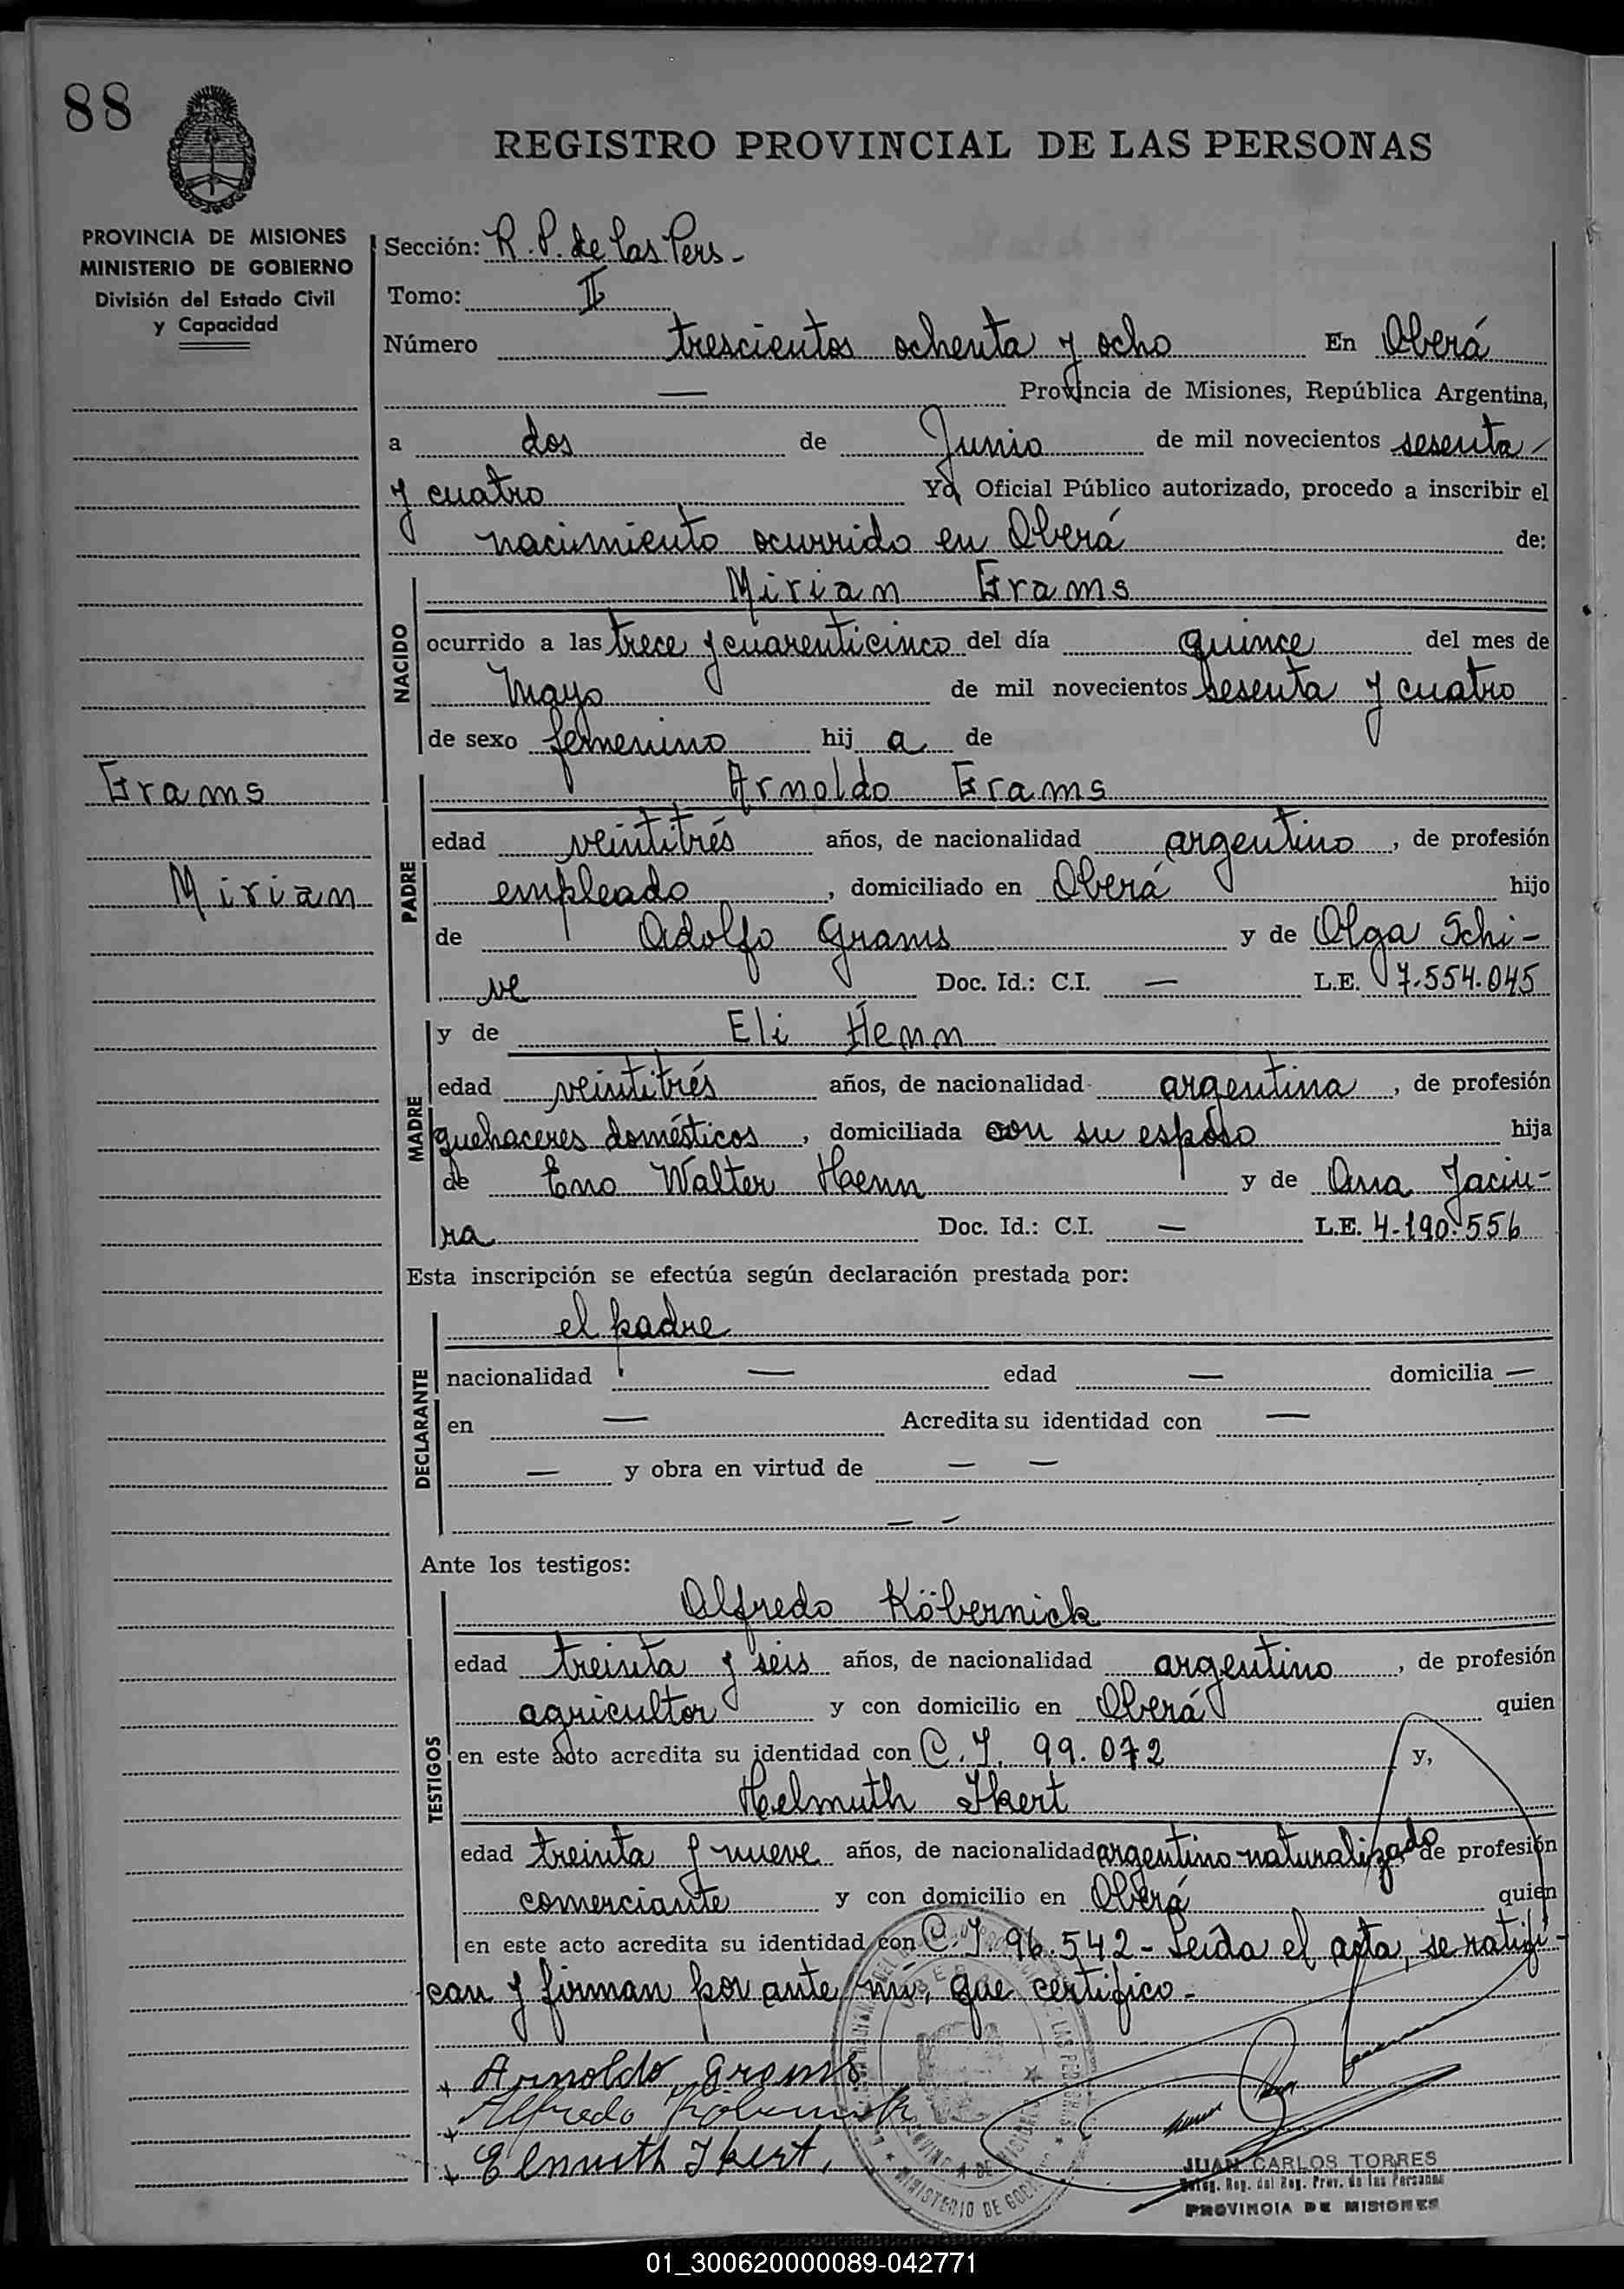 88
REGISTRO PROVINCIAL DE LAS PERSONAS
PROVINCIA DE MISIONES
MINISTERIO DE GOBIERNO
División del Estado Civil
y Capacidad
Sección: R. P. de las Pers -
Tomo: II
Número trescientos ochenta y ocho En Oberá
— Provincia de Misiones, República Argentina,
a dos de Junio de mil novecientos sesenta
y cuatro Yo, Oficial Público autorizado, procedo a inscribir el
nacimiento ocurrido en Oberá de:
NACIDO
Mirian Grams
ocurrido a las trece y cuarenticinco del día quince del mes de
Mayo de mil novecientos sesenta y cuatro
de sexo femenino hij a de
Grams
Mirian
PADRE
Arnoldo Grams
edad veintitrés años, de nacionalidad argentino, de profesión
empleado, domiciliado en Oberá hijo
de Adolfo Grams y de Olga Schi-
ve Doc. Id.: C.I. — L.E. 7.554.045
MADRE
y de Eli Henn
edad veintitrés años, de nacionalidad argentina, de profesión
quehaceres domésticos, domiciliada con su esposo hija
de Eno Walter Henn y de Ana Jacin-
ra Doc. Id.: C.I. — L.E. 4.190.556
Esta inscripción se efectúa según declaración prestada por:
DECLARANTE
el padre
nacionalidad — edad — domicilia —
en — Acredita su identidad con —
— y obra en virtud de — —
— —
Ante los testigos:
TESTIGOS
Alfredo Köbernick
edad treinta y seis años, de nacionalidad argentino, de profesión
agricultor y con domicilio en Oberá quien
en este acto acredita su identidad con C. I. 99.072 y,
Helmuth Ikert
edad treinta y nueve años, de nacionalidad argentino naturalizado de profesión
comerciante y con domicilio en Oberá quien
en este acto acredita su identidad con C. I. 96.542 - Leída el acta, se ratifi-
can y firman por ante mí, que certifico -
Arnoldo Grams
Alfredo Kobernick
Elmuth Ikert
MINISTERIO DE GOBIERNO
PROVINCIA DE MISIONES
JUAN CARLOS TORRES
Deleg. Reg. del Reg. Prov. de las Personas
PROVINCIA DE MISIONES
01_300620000089-042771